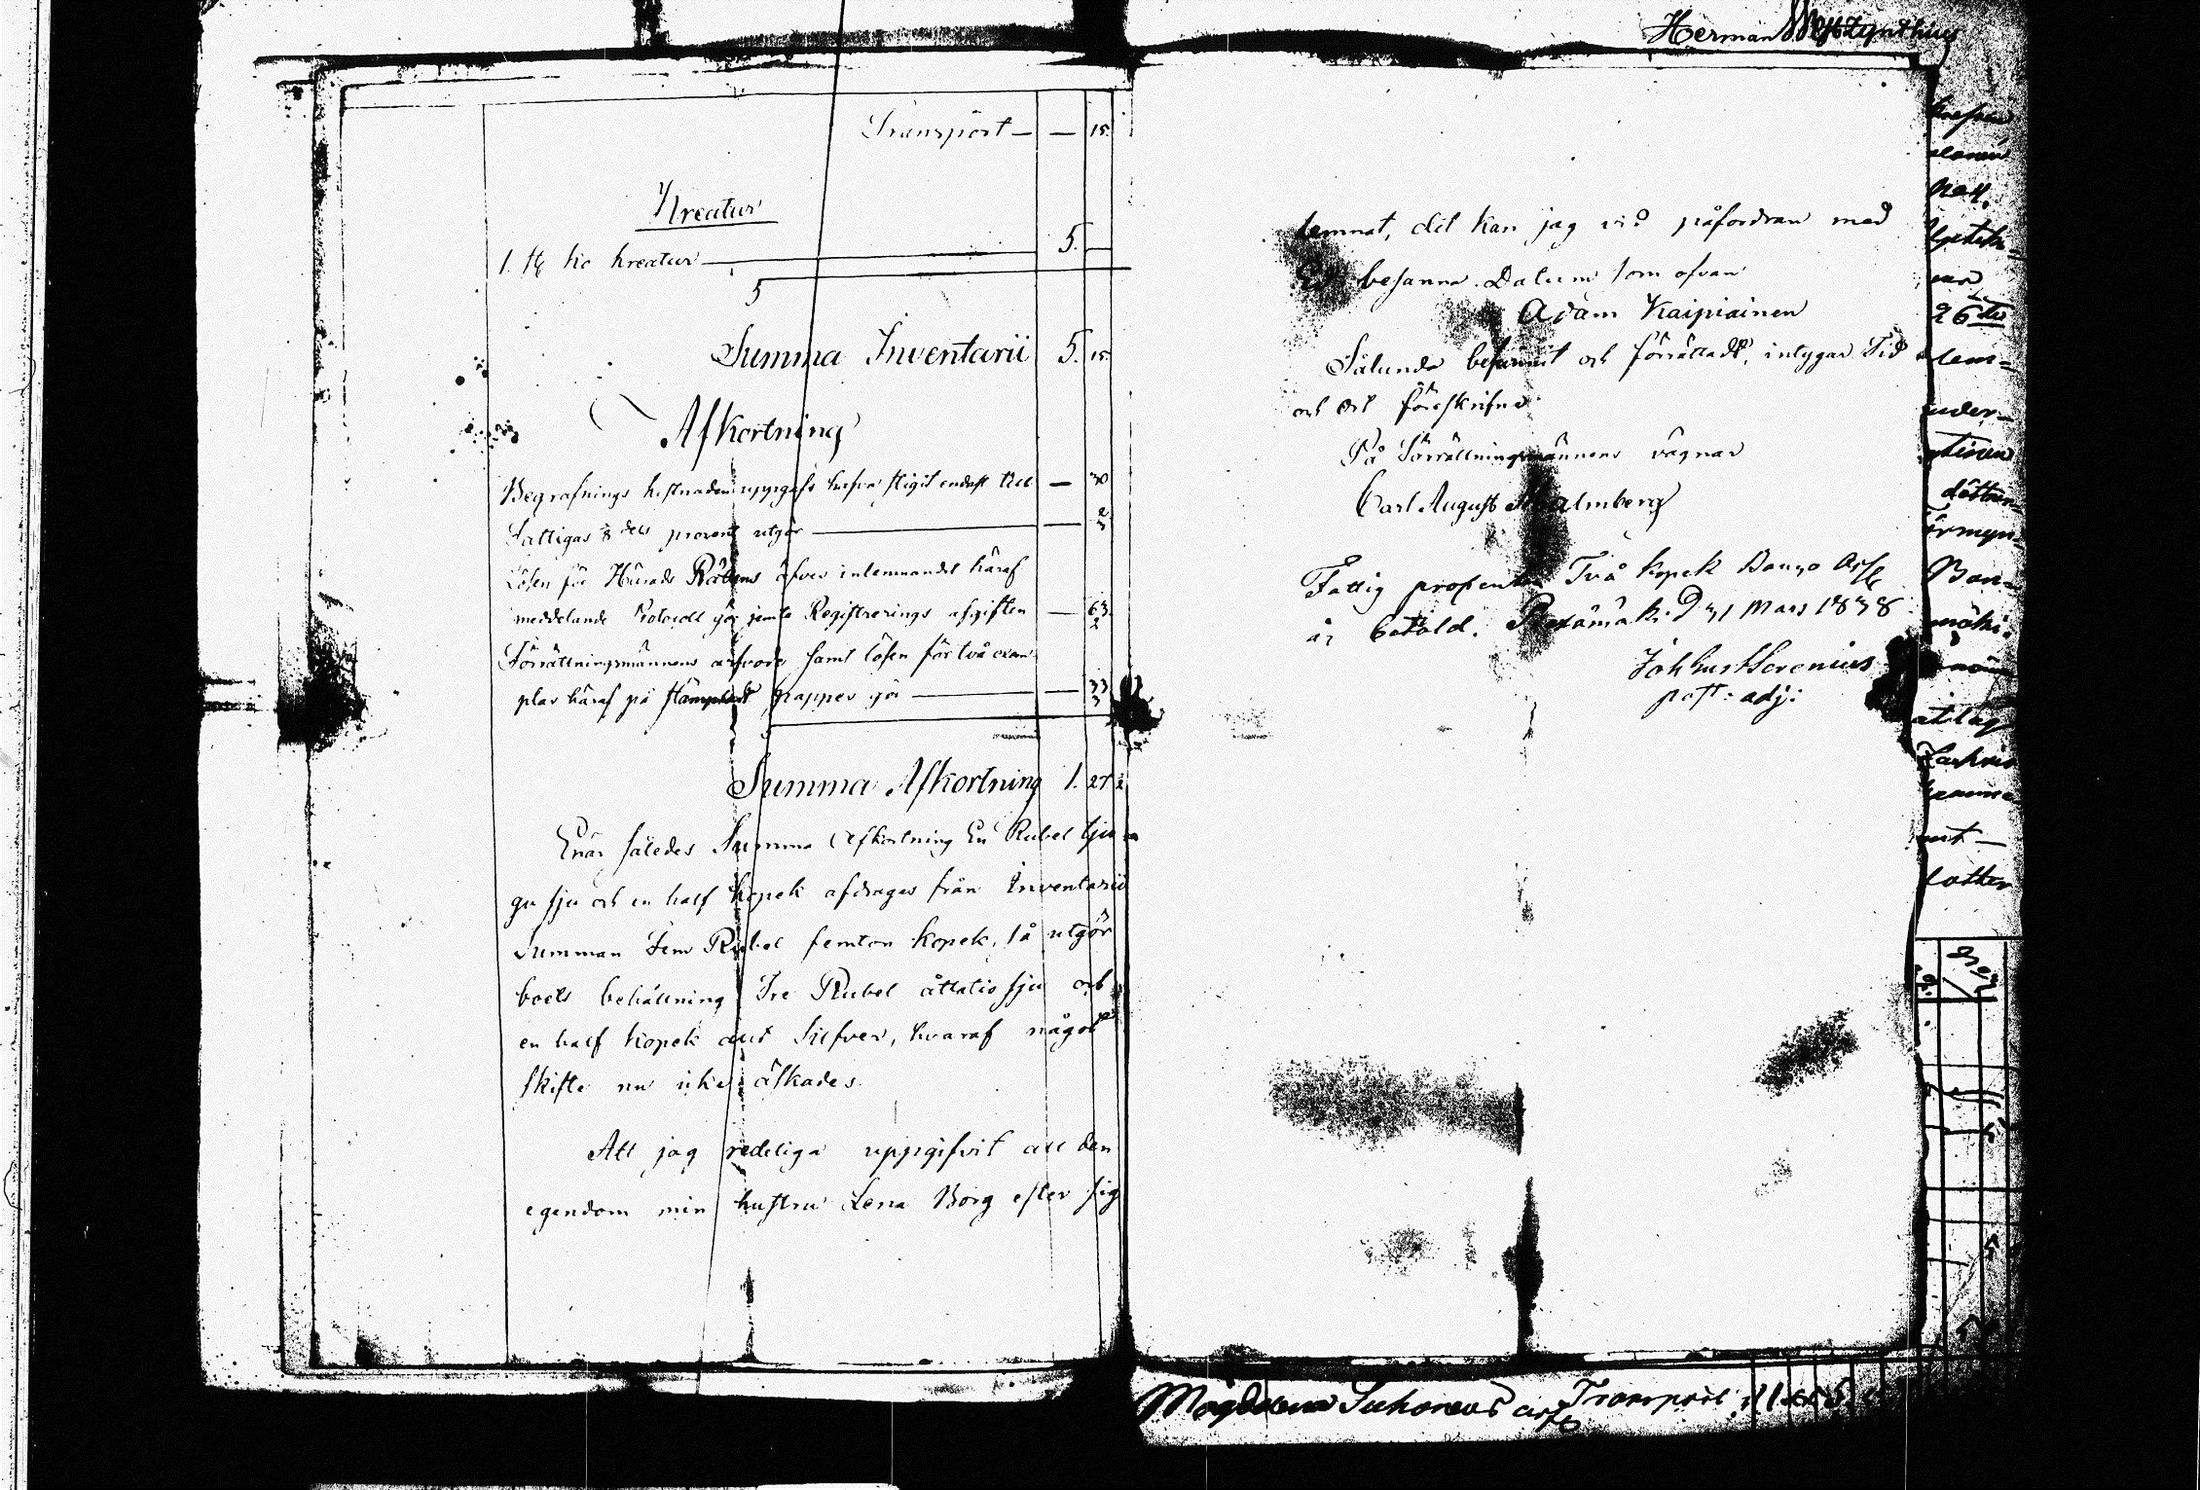 Herman
Transport — — 15.
Kreatur
1. st ko kreatur — 5. —
5
Summa Inventarii 5. 15.
Afkortning
Begrafnings kostnaden uppgafs hafva stigit endast till — 30
Fattigas 1/8 dels procent utgör — 2
Lösen för Härads Rättens öfver inlemnandet häraf
meddelande Protocoll gör jemte Registrerings afgiften — 63.
Förrättningsmännens arfvode samt lösen för två exem
plar häraf på stämpladt papper gör — 33
Summa Afkortning 1. 27 ½
Enär således Summa Afkortning En Rubel tju
gu sju och en half kopek afdrages från Inventarii
Summan Fem Rubel femton kopek, så utgör
boets behållning Tre Rubel åttatio sju och
en half kopek allt Silfver, hvaraf något
skifte nu icke äskades.
Att jag redeliga uppgifvit all den
egendom min hustru Lena Borg efter sig
lemnat, det kan jag vid påfordran med
Ed besanna. Datum som ofvan
Adam Kaipiainen
Sålunda befunnit och förrättadt, intygar Tid
och Ort föreskrifne
På Förrättningsmännens vägnar
Carl August Malmberg
Fattig procenten Två kopek Banco Assg
är betald. D 31 Mars 1838
Joh Gust Serenius
past: adj:
26
dättren
Bon-
Magdalena Suhonens Transport